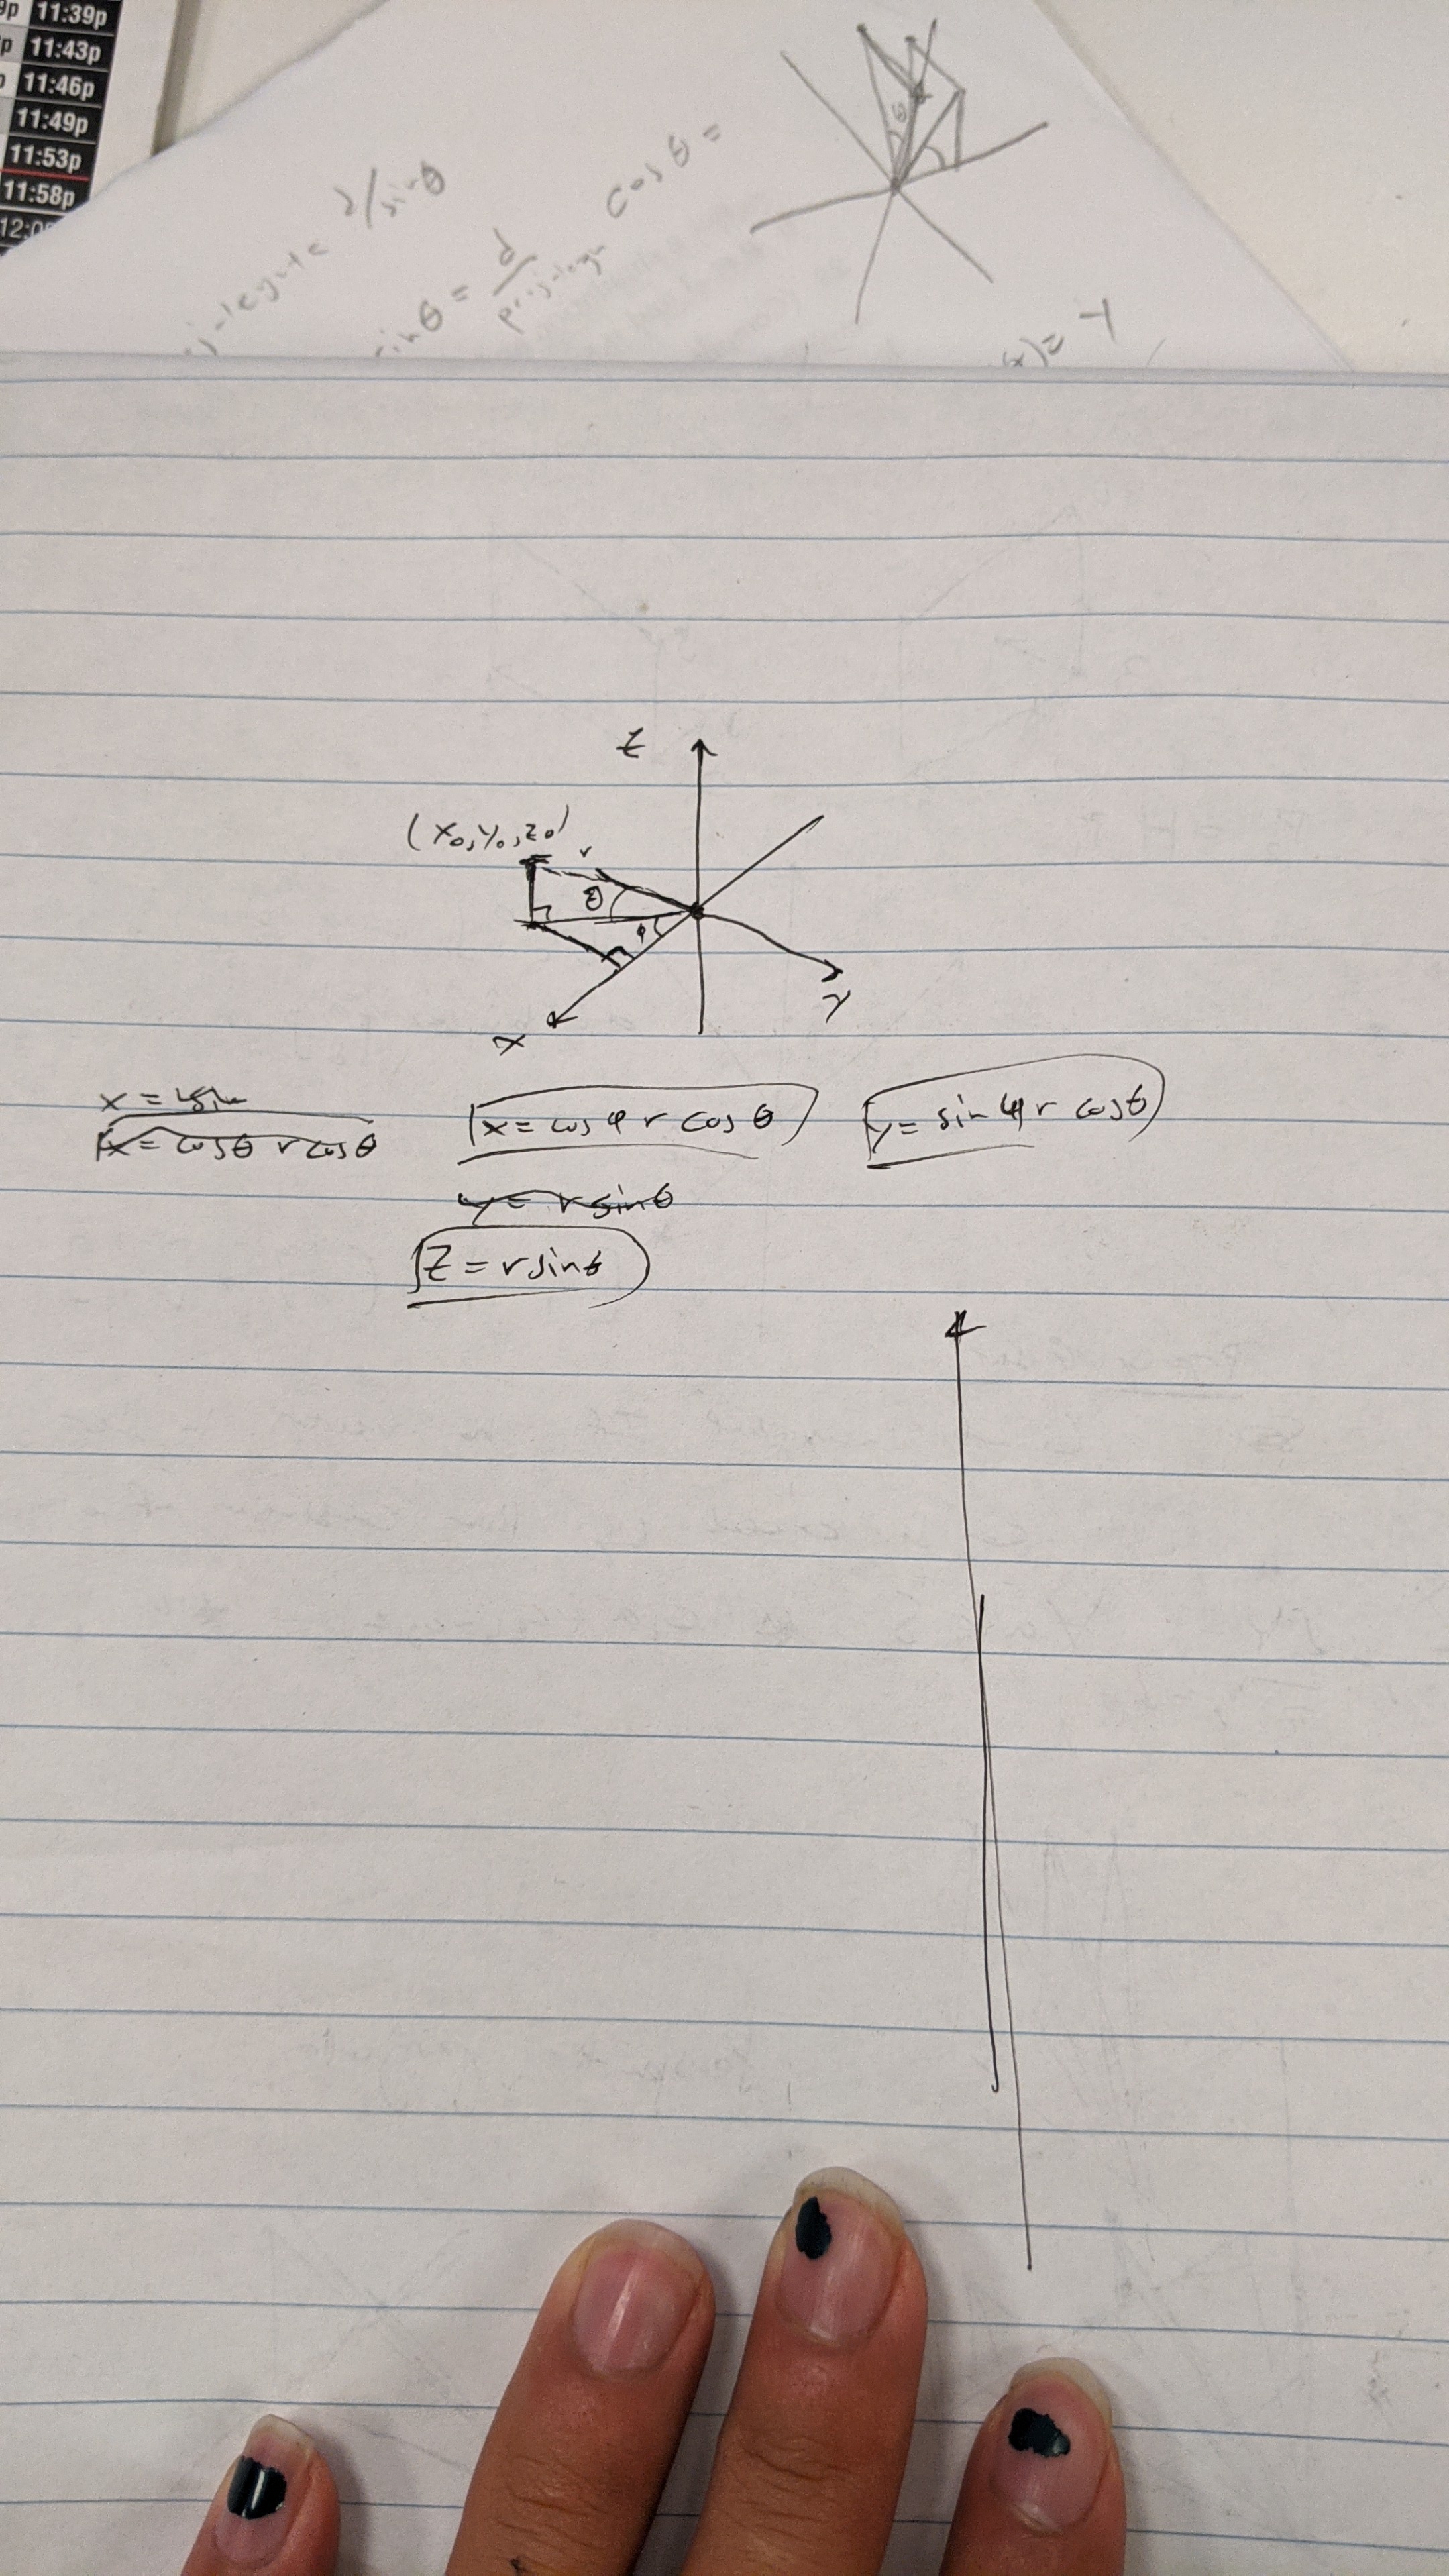 11:39p
p 11:43p
11:46p
11:49p
11:53p
11:58p
2/sinθ
cos θ =
θ = d
z
(x₀, y₀, z₀)
r
θ
φ
y
x
x = rsin
x = cosθ r cosθ
x = cos φ r cos θ
y = sin φ r cosθ
y = r sinθ
z = r sinθ